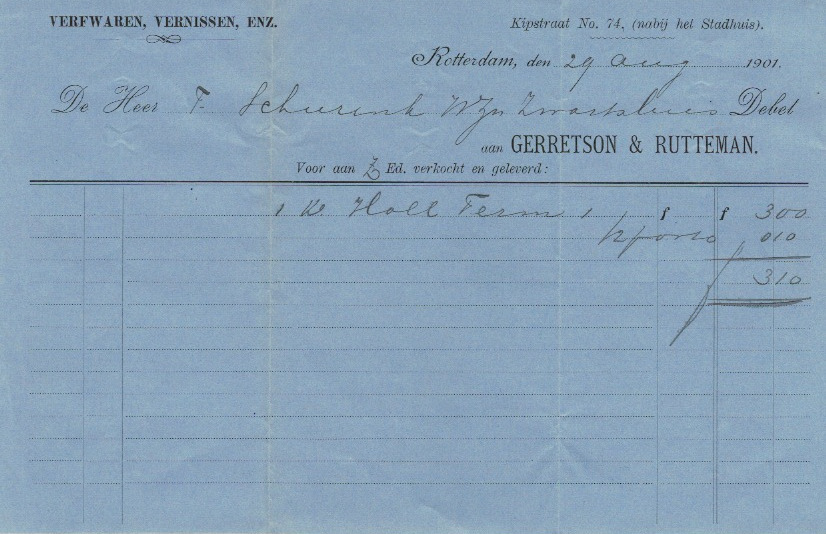 VERFWAREN, VERNISSEN, ENZ.
Kipstraat No. 74, (nabij het Stadhuis).
Rotterdam, den 29 Aug 1901.
De Heer F. Schurink Wzn Zwartsluis Debet
aan GERRETSON & RUTTEMAN.
Voor aan Z Ed. verkocht en geleverd:
1 Holl Ferm 1 f f 300
porto 010
310